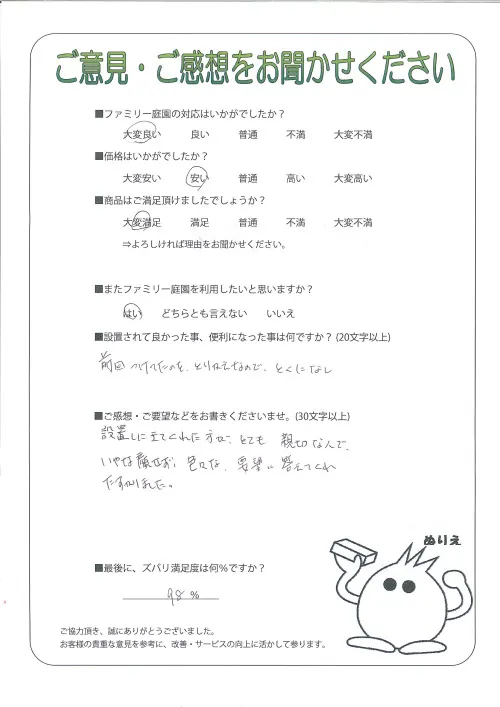 ご意見・ご感想をお聞かせください
■ファミリー庭園の対応はいかがでしたか？
大変良い 良い 普通 不満 大変不満
■価格はいかがでしたか？
大変安い 安い 普通 高い 大変高い
■商品はご満足頂けましたでしょうか？
大変満足 満足 普通 不満 大変不満
⇒よろしければ理由をお聞かせください。
■またファミリー庭園を利用したいと思いますか？
はい どちらとも言えない いいえ
■設置されて良かった事、便利になった事は何ですか？(20文字以上)
前回つけてたのを、とりかえなので、とくになし
■ご感想・ご要望などをお書きくださいませ。(30文字以上)
設置しに立てくれた方が、とても 親切なんで、
いやな顔せず、色々な、要望に答えてくれ
たすかりました。
ぬりえ
■最後に、ズバリ満足度は何％ですか？
98 %
ご協力頂き、誠にありがとうございました。
お客様の貴重な意見を参考に、改善・サービスの向上に活かして参ります。